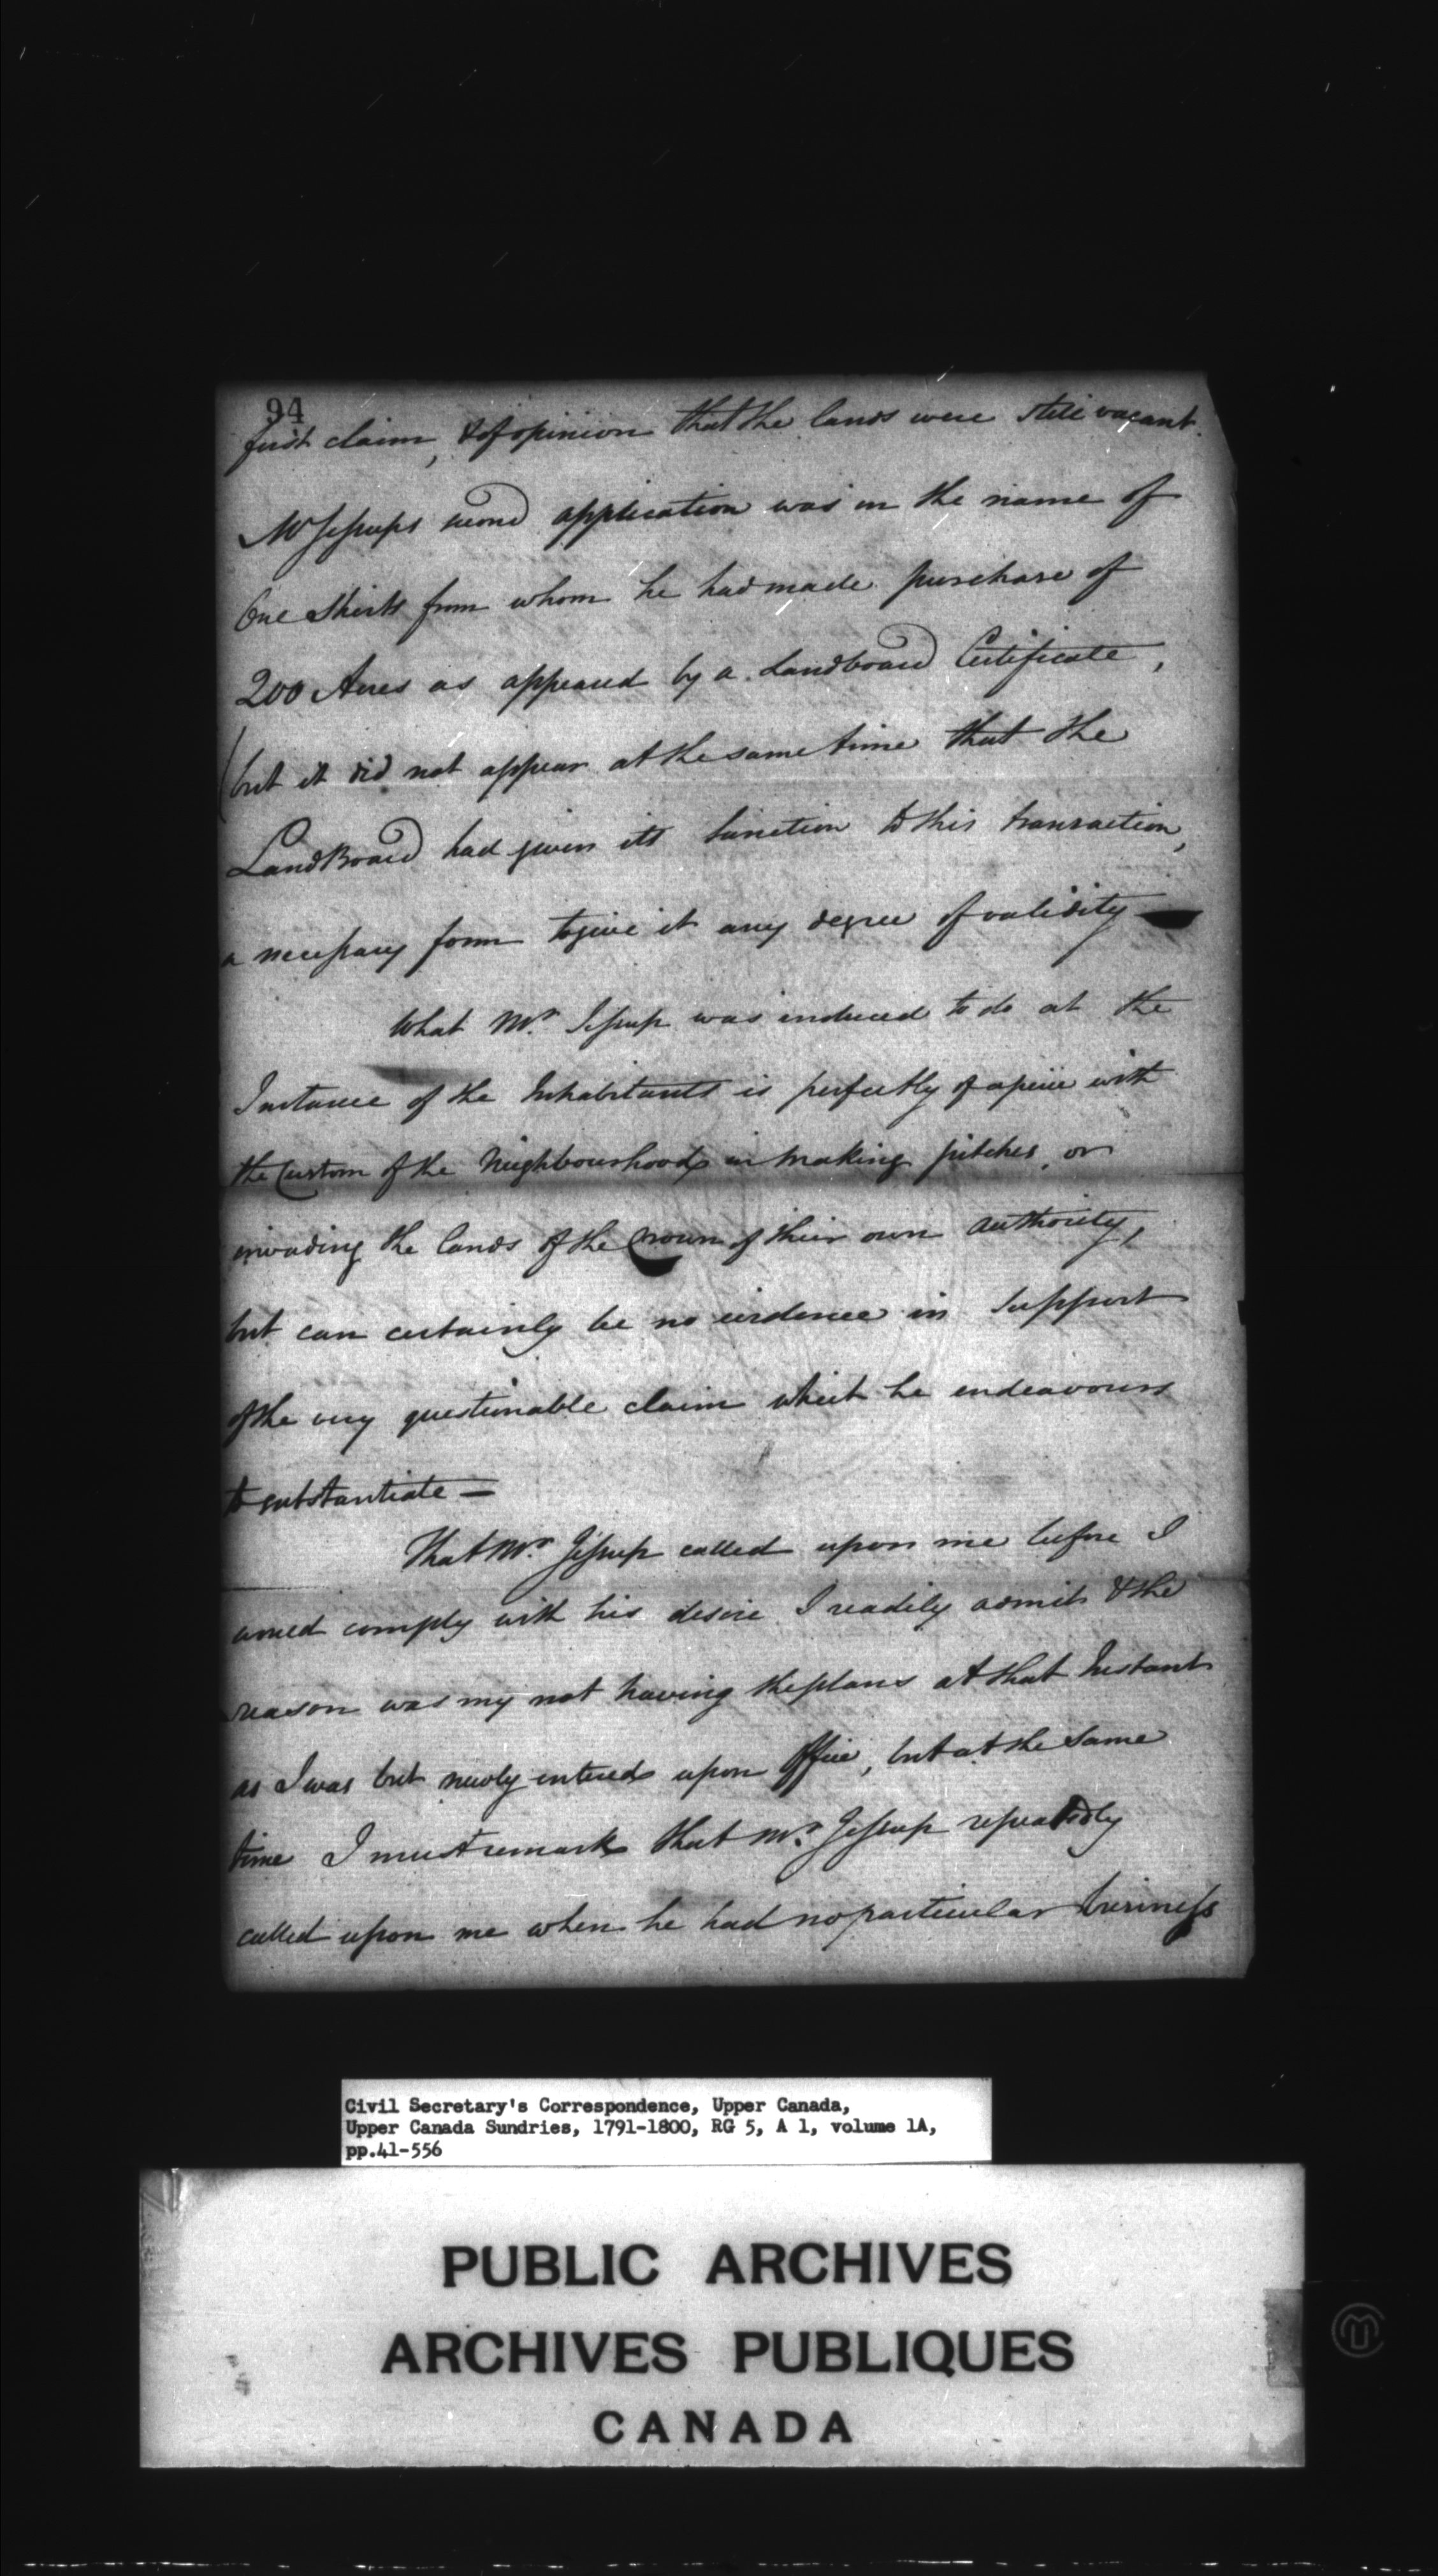 94
first claim, & of opinion that the lands were still vacant.
Mr Jessups second application was in the name of
One Skirts from whom he had made purchase of
200 Acres as appeared by a Landboard Certificate,
(but it did not appear at the same time that the
LandBoard had given its sanction to this transaction,
a necessary form to give it any degree of validity —
What Mr. Jessup was induced to do at the
Instance of the Inhabitants is perfectly of a peice with
the Custom of the Neighbourhood in making pitches, or
invading the lands of the Crown of their own authority,
but can certainly be no evidence in support
of the very questionable claim which he endeavours
to substantiate —
That Mr. Jessup called upon me before I
would comply with his desire I readily admit & the
reason was my not having the plans at that Instant
as I was but newly entered upon Office, but at the same
time I must remark that Mr. Jessup repeatedly
called upon me when he had no particular business
Civil Secretary's Correspondence, Upper Canada,
Upper Canada Sundries, 1791-1800, RG 5, A 1, volume 1A,
pp.41-556
PUBLIC ARCHIVES
ARCHIVES PUBLIQUES
CANADA